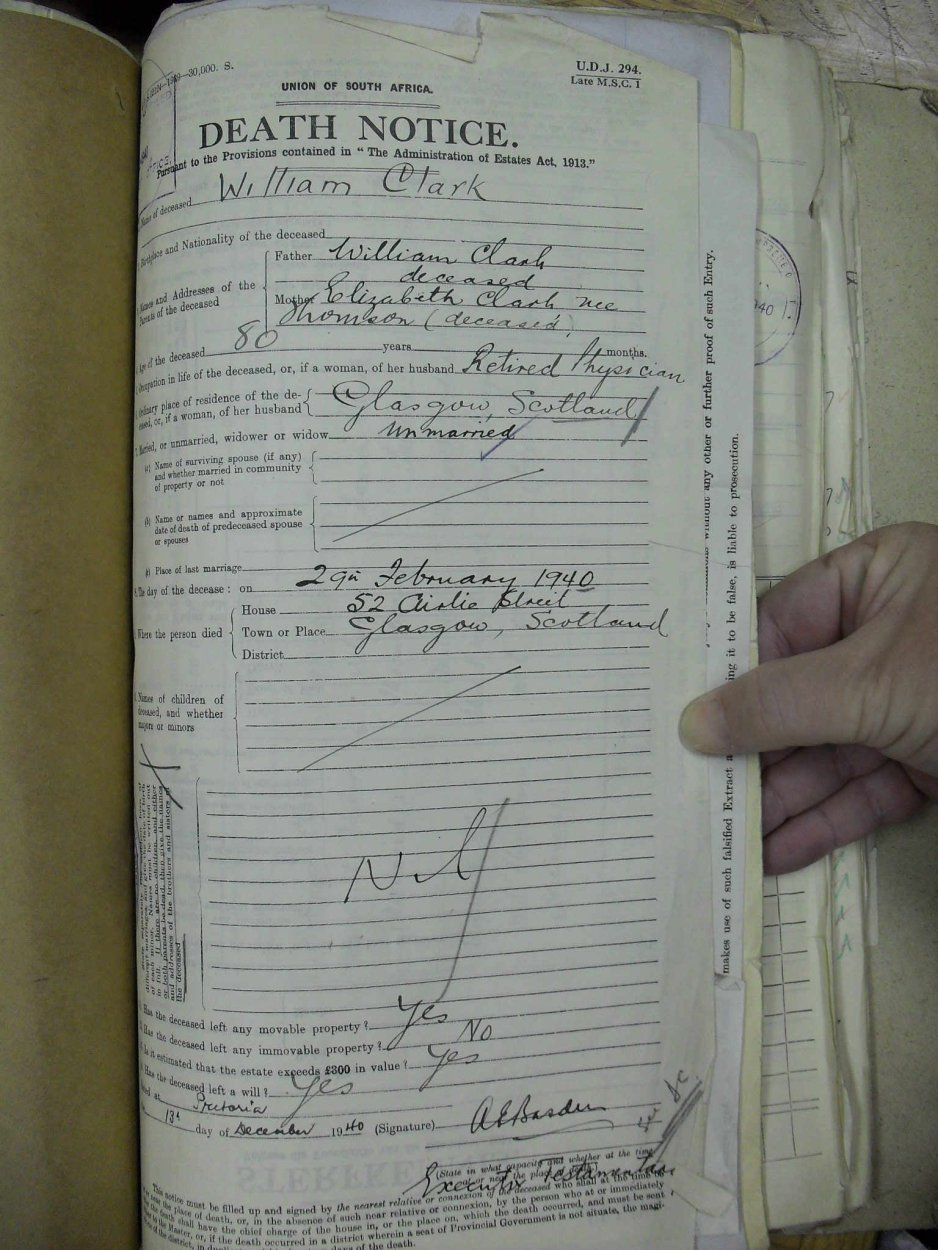 30,000. S.
U.D.J. 294.
Late M.S.C. 1
UNION OF SOUTH AFRICA.
DEATH NOTICE.
Pursuant to the Provisions contained in “ The Administration of Estates Act, 1913.”
Name of deceased William Clark
Birthplace and Nationality of the deceased
Names and Addresses of the Parents of the deceased
Father William Clark
deceased
Mother Elizabeth Clark nee
Thomson (deceased)
Age of the deceased 80 years months.
Occupation in life of the deceased, or, if a woman, of her husband Retired Physician
Ordinary place of residence of the de-
ceased, or, if a woman, of her husband Glasgow, Scotland
Married, or unmarried, widower or widow unmarried
(a) Name of surviving spouse (if any)
and whether married in community
of property or not
(b) Name or names and approximate
date of death of predeceased spouse
or spouses
(c) Place of last marriage
The day of the decease : on 29th February 1940
Where the person died
House 52 Airlie Street
Town or Place Glasgow, Scotland
District
Names of children of
deceased, and whether
majors or minors
of each minor. Names must be written out
in full. If there are no children, and either
or both parents be dead, then give the names
and addresses of the brothers and sisters of
the deceased
Nil
Has the deceased left any movable property ? Yes
Has the deceased left any immovable property ? No
Is it estimated that the estate exceeds £300 in value ? Yes
Has the deceased left a will ? Yes
Dated at Pretoria
13th day of December 1940 (Signature) A E Basden
(State in what capacity and whether at the time
Executor Testamentary
This notice must be filled up and signed by the nearest relative or connexion of the deceased who shall at the time be
the place of death, or, in the absence of such near relative or connexion, by the person who at or immediately
the death shall have the chief charge of the house in, or the place on, which the death occurred, and must be sent
to the Master, or, if the death occurred in a district wherein a seat of Provincial Government is not situate, the magi-
of the district, in days of the death.
without any other or further proof of such Entry.
ing it to be false, is liable to prosecution.
makes use of such falsified Extract